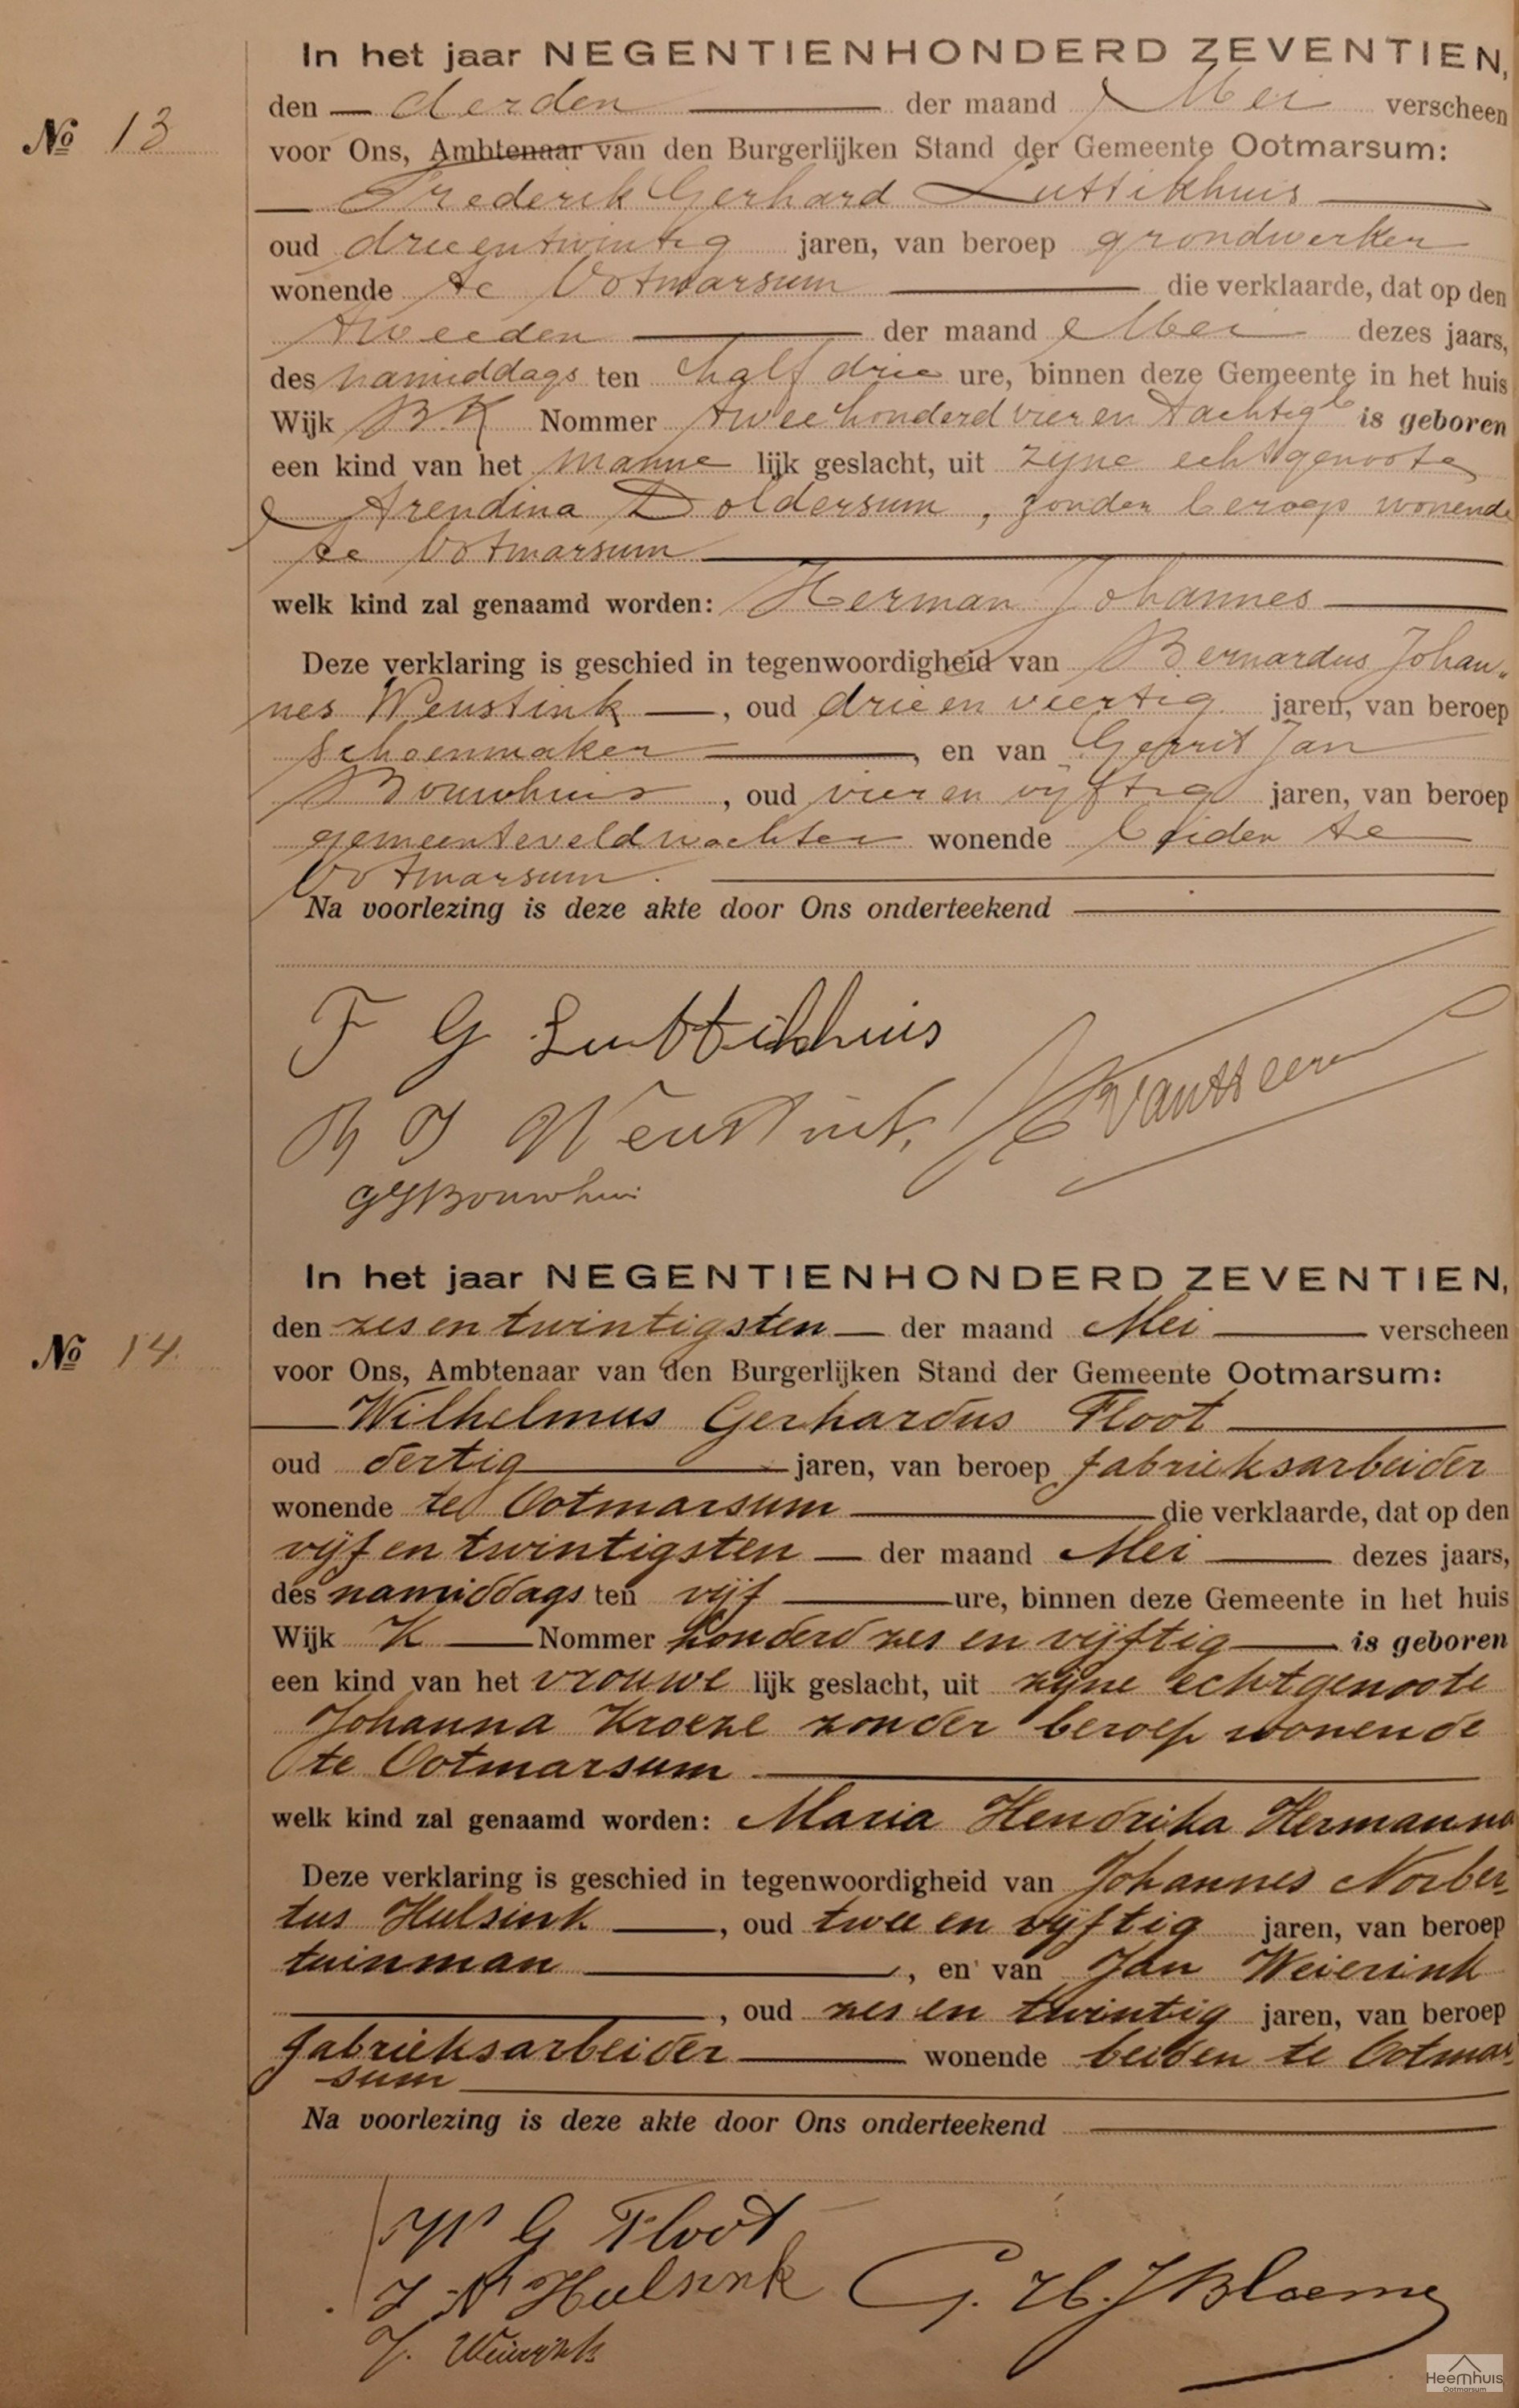 In het jaar NEGENTIENHONDERD ZEVENTIEN,
den — derden — der maand Mei verscheen
No 13
voor Ons, Ambtenaar van den Burgerlijken Stand der Gemeente Ootmarsum:
Frederik Gerhard Luttikhuis
oud drieentwintig jaren, van beroep grondwerker
wonende te Ootmarsum — die verklaarde, dat op den
tweeden — der maand Mei dezes jaars,
des namiddags ten half drie ure, binnen deze Gemeente in het huis
Wijk B.K Nommer tweehonderd vier en tachtig b is geboren
een kind van het manne lijk geslacht, uit zijne echtgenoote
Arendina Doldersum, zonder beroep wonende
te Ootmarsum
welk kind zal genaamd worden: Herman Johannes
Deze verklaring is geschied in tegenwoordigheid van Bernardus Johan„
nes Weustink —, oud drie en veertig jaren, van beroep
schoenmaker —, en van Gerrit Jan
Bouwhuis, oud vier en vijftig jaren, van beroep
gemeenteveldwachter wonende beiden te
Ootmarsum.
Na voorlezing is deze akte door Ons onderteekend
F G Luttikhuis
B J Weustink
GJ Bouwhuis
In het jaar NEGENTIENHONDERD ZEVENTIEN,
den zes en twintigsten — der maand Mei — verscheen
No 14.
voor Ons, Ambtenaar van den Burgerlijken Stand der Gemeente Ootmarsum:
Wilhelmus Gerhardus Floot
oud dertig — jaren, van beroep fabrieksarbeider
wonende te Ootmarsum — die verklaarde, dat op den
vijf en twintigsten — der maand Mei — dezes jaars,
des namiddags ten vijf — ure, binnen deze Gemeente in het huis
Wijk K — Nommer honderd zes en vijftig — is geboren
een kind van het vrouwe lijk geslacht, uit zijne echtgenoote
Johanna Kroeze zonder beroep wonende
te Ootmarsum
welk kind zal genaamd worden: Maria Hendrika Hermanna
Deze verklaring is geschied in tegenwoordigheid van Johannes Norber„
tus Hulsink —, oud twee en vijftig jaren, van beroep
tuinman —, en van Jan Weierink
—, oud zes en twintig jaren, van beroep
fabrieksarbeider — wonende beiden te Ootmar„
sum
Na voorlezing is deze akte door Ons onderteekend
W G Floot
J N Hulsink G. H. J Bloemen
J. Weierink
Heemhuis
Ootmarsum